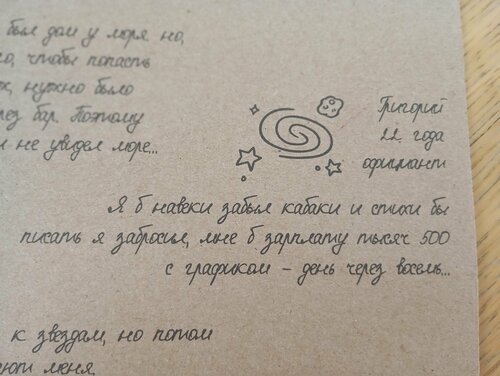 был дом у моря но,
о, чтобы попасть
нужно было
рез бар. Поэтому
и не увидел море...
Григорий
22 года
официант
Я б навеки забыл кабаки и стихи бы
писать я забросил, мне б зарплату тысяч 500
с графиком - день через восемь...
к звездам, но потом
меня,